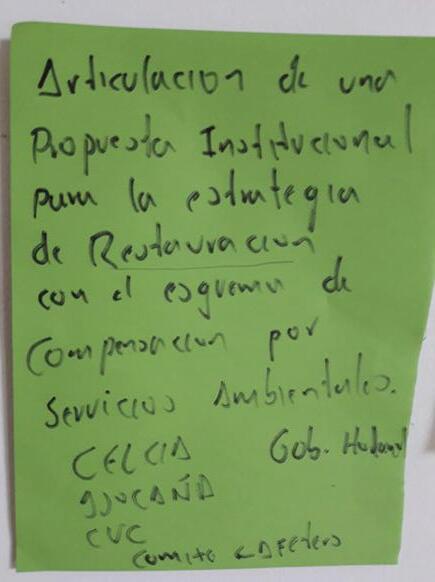 Articulacion de una
Propuesta Institucional
para la estrategia
de Restauracion
con el esquema de
Compensacion por
Servicios Ambientales.
CELCIA Gob.
ASOCAÑA
CVC
comite cafetero